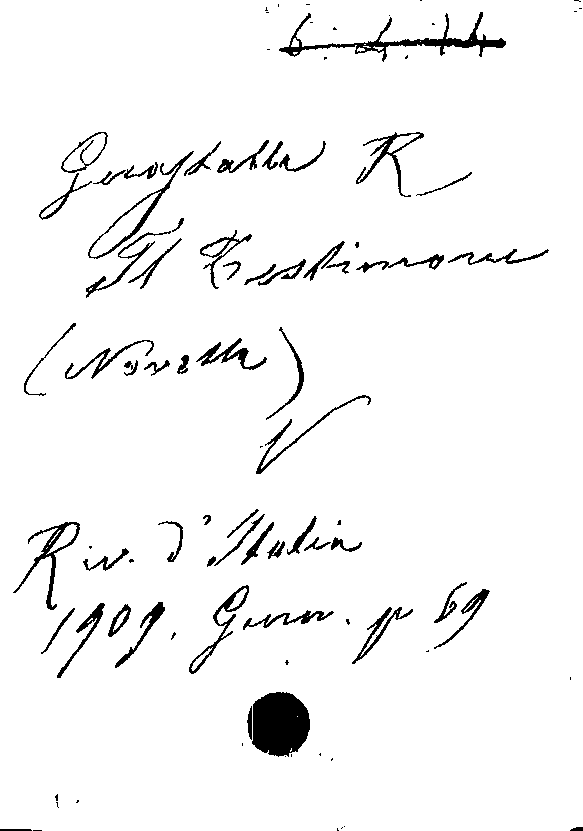 6. L. 14
Guastalla R
Il Testimone
(Novella)
V
Riv. d'Italia
1909. Genn. p 69